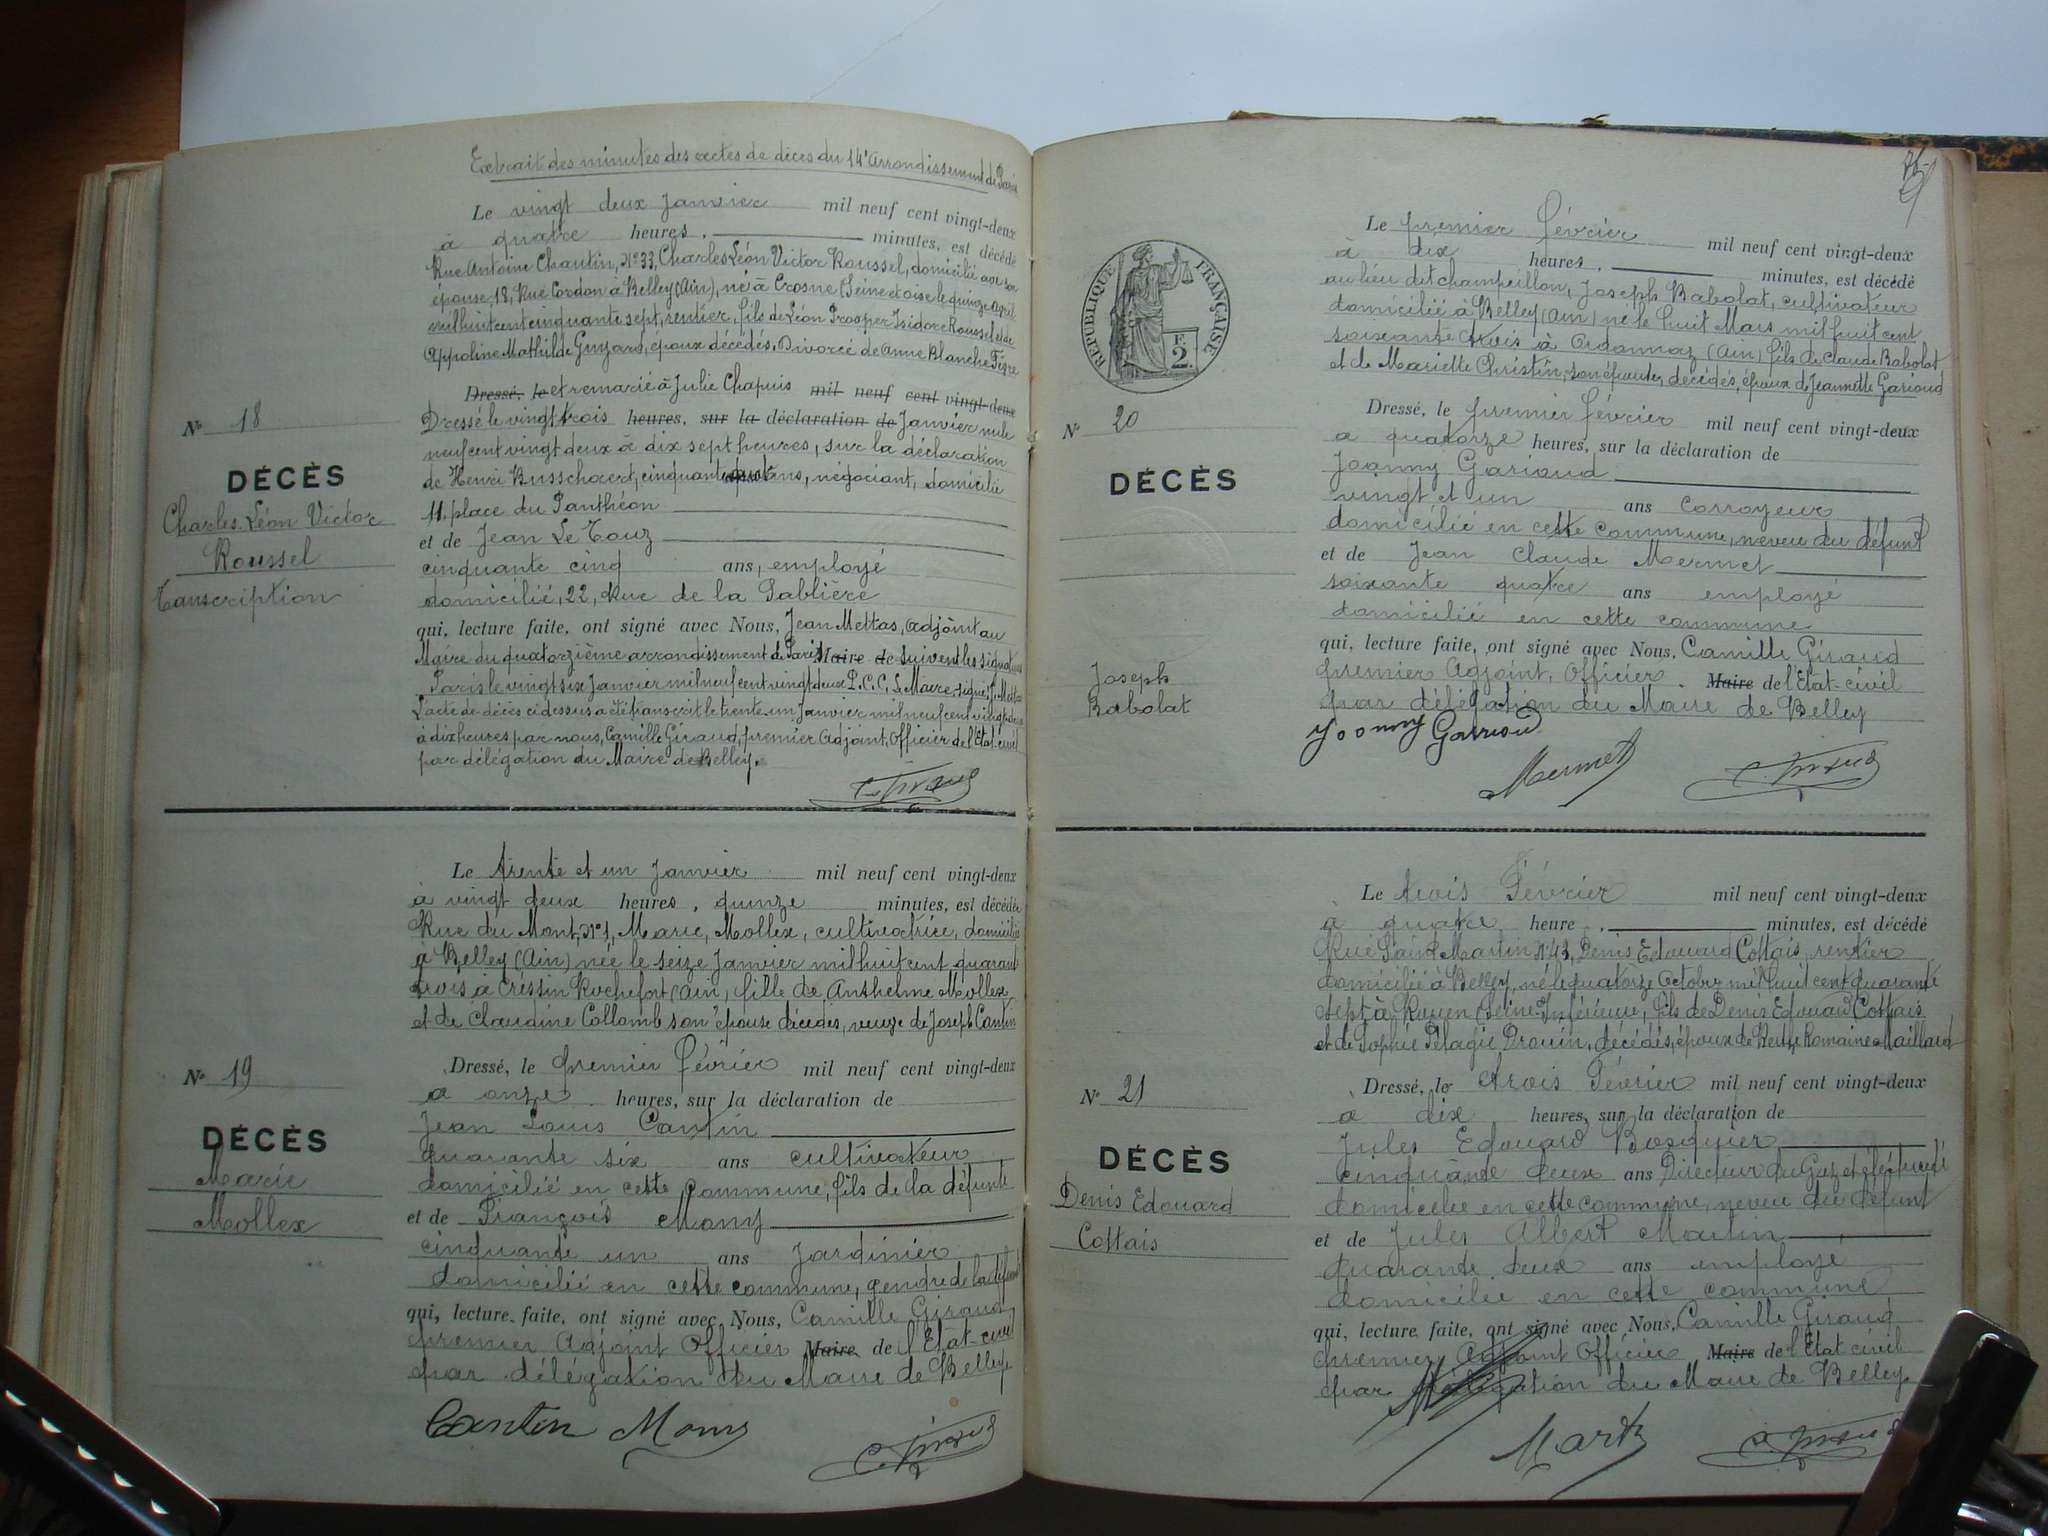 Extrait des minutes des actes de décès du 14e Arrondissement de Paris
Le vingt deux Janvier mil neuf cent vingt-deux
à quatre heures, minutes, est décédé
Rue Antoine Chantin, No 33, Charles Léon Victor Roussel, domicilié avec son
épouse, 18, Rue Cordon à Belley (Ain), né à Crosne (Seine et oise le quinze Avril
mil huit cent cinquante sept, rentier, fils de Léon Prosper Isidore Roussel et de
Appoline Mathilde Guyard, époux décédés, Divorcé de Anne Blanche
Dressé, le et remarié à Julie Chapuis mil neuf cent vingt-deux
No 18
Dressé le vingt trois heures, sur la déclaration de Janvier mil
neuf cent vingt deux à dix sept heures, sur la déclaration
DÉCÈS
de Henri Busschaert, cinquante ans, négociant, domicilié
Charles Léon Victor
11 place du Panthéon
Roussel
et de Jean Le Touz
Transcription
cinquante cinq ans, employé
domicilié, 22, Rue de la Sablière
qui, lecture faite, ont signé avec Nous, Jean Mettas, Adjoint au
Maire du quatorzième arrondissement de Paris Maire de Suivent les signatures
Paris le vingt six Janvier mil neuf cent vingt deux P.C.C. Le Maire, signé:
L'acte de décès ci dessus a été transcrit le trente un Janvier mil neuf cent vingt deux
à dix heures par nous, Camille Giraud, premier Adjoint, Officier de l'Etat-civil
par délégation du Maire de Belley.
C. Giraud
Le trente et un Janvier mil neuf cent vingt-deux
à vingt deux heures, quinze minutes, est décédée
Rue du Mont, No 1, Marie, Mollex, cultivatrice, domicilié
à Belley (Ain) née le seize Janvier mil huit cent quarante
trois à Cressin Rochefort (Ain, fille de Anthelme Mollex
et de Claudine Collomb son épouse décédés, veuve de Joseph Cantin
No 19
Dressé, le premier février mil neuf cent vingt-deux
à onze heures, sur la déclaration de
DÉCÈS
Jean Louis Cantin
Marie
quarante six ans cultivateur
Mollex
domicilié en cette commune, fils de la défunte
et de François Mony
cinquante un ans Jardinier
domicilié en cette commune, gendre de la défunte
qui, lecture faite, ont signé avec Nous, Camille Giraud,
premier Adjoint Officier Maire de l'Etat-civil
par délégation du Maire de Belley.
Cantin Mony
C. Giraud
Le premier février mil neuf cent vingt-deux
à dix heures, minutes, est décédé
au lieu dit champeillon, Joseph Babolat, cultivateur
domicilié à Belley (Ain) né le huit Mars mil huit cent
soixante trois à Ordonnaz (Ain) fils de Claude Babolat
et de Mariette Christin, son épouse, décédés, époux de Jeannette Garioud
RÉPUBLIQUE FRANÇAISE
F.
2.
No 20
Dressé, le premier février mil neuf cent vingt-deux
à quatorze heures, sur la déclaration de
DÉCÈS
Joanny Garioud
vingt et un ans corroyeur
domicilié en cette commune, neveu du défunt
et de Jean Claude Mermet
soixante quatre ans employé
domicilié en cette commune
qui, lecture faite, ont signé avec Nous, Camille Giraud
Joseph
Babolat
premier Adjoint, Officier Maire de l'Etat-civil
par délégation du Maire de Belley
Joanny Garioud
Mermet
C. Giraud
Le trois Février mil neuf cent vingt-deux
à quatre heure, minutes, est décédé
Rue Saint Martin No 43, Denis Edouard Cottais, rentier
domicilié à Belley, né le quatorze Octobre mil huit cent quarante
sept à Rouen (Seine-Inférieure, fils de Denis Edouard Cottais
et de Sophie Pélagie Drouin, décédés, époux de Romaine Maillard
No 21
Dressé, le trois Février mil neuf cent vingt-deux
à dix heures, sur la déclaration de
DÉCÈS
Jules Edouard Bosquier
cinquante deux ans Directeur du Gaz et électricité
Denis Edouard
domicilié en cette commune, neveu du défunt
Cottais
et de Jules Albert Martin
quarante deux ans employé
domicilié en cette commune
qui, lecture faite, ont signé avec Nous, Camille Giraud
premier Adjoint Officier Maire de l'Etat civil
par délégation du Maire de Belley.
Martin
C. Giraud